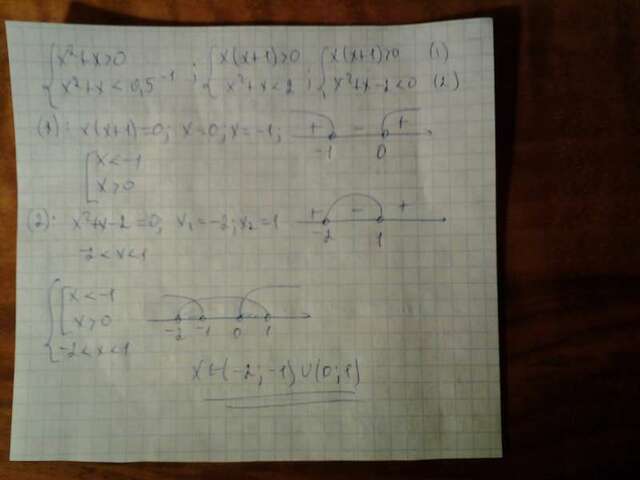 { x²+x>0 ; { x(x+1)>0 ; { x(x+1)>0 (1)
{ x²+x<0,5⁻¹ { x²+x<2 { x²+x-2<0 (2)
(1): x(x+1)=0; x=0; x=-1; + - +
-1 0
[ x<-1
[ x>0
(2): x²+x-2=0; x₁=-2; x₂=1 + - +
-2 1
-2<x<1
{ [ x<-1
[ x>0
-2 -1 0 1
-2<x<1
x∈(-2;-1)∪(0;1)